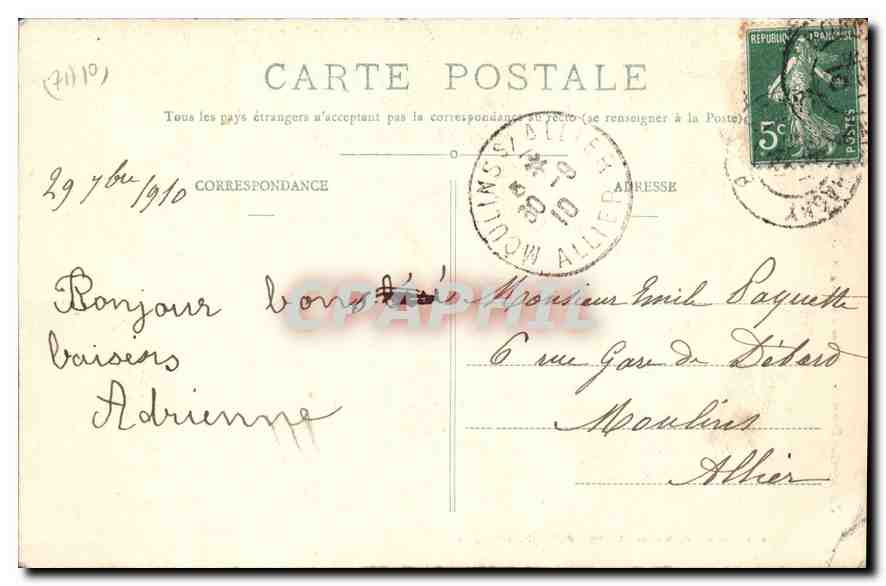 (71) 10)
CARTE POSTALE
Tous les pays étrangers n'acceptant pas la correspondance au recto (se renseigner à la Poste)
REPUBLIQUE FRANÇAISE
5c
POSTES
MOULINS S/ ALLIER
30 - 9
10
ALLIER
29 7bre 1910
CORRESPONDANCE
ADRESSE
Bonjour bons
baisers
Adrienne
Monsieur Emile Paquette
6 rue Gare de Débord
Moulins
Allier
CPAPHIL